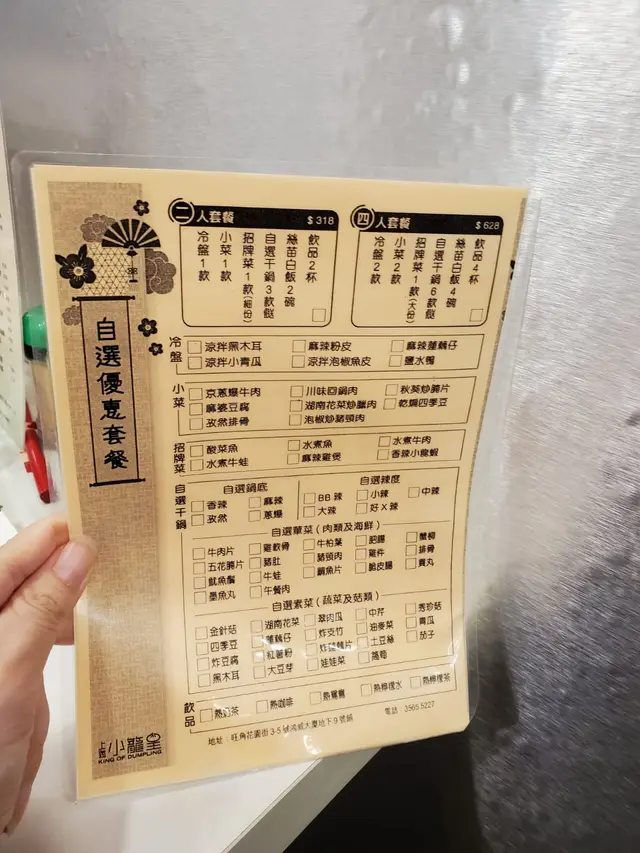 自選優惠套餐
二人套餐 $318
冷盤1款
小菜1款
招牌菜1款(細份)
自選干鍋3款餸
絲苗白飯2碗
飲品2杯
四人套餐 $628
冷盤2款
小菜2款
招牌菜1款(大份)
自選干鍋6款餸
絲苗白飯4碗
飲品4杯
冷盤
涼拌黑木耳 麻辣粉皮 麻辣蓮藕仔
涼拌小青瓜 涼拌泡椒魚皮 鹽水鴨
小菜
京蔥爆牛肉 川味回鍋肉 秋葵炒腩片
麻婆豆腐 湖南花菜炒臘肉 乾煸四季豆
孜然排骨 泡椒炒豬頸肉
招牌菜
酸菜魚 水煮魚 水煮牛肉
水煮牛蛙 麻辣雞煲 香辣小龍蝦
自選干鍋
自選鍋底
香辣 麻辣
孜然 蔥爆
自選辣度
BB辣 小辣 中辣
大辣 好X辣
自選葷菜(肉類及海鮮)
牛肉片 雞軟骨 牛柏葉 肥腸 蟹柳
五花腩片 豬肚 豬頸肉 雞件 排骨
魷魚鬚 牛蛙 鯇魚片 脆皮腸 貢丸
墨魚丸 午餐肉
自選素菜(蔬菜及菇類)
金針菇 湖南花菜 翠肉瓜 中芹 秀珍菇
四季豆 蓮藕仔 炸支竹 油麥菜 青瓜
炸豆腐 紅薯粉 土豆絲 茄子
黑木耳 大豆芽 娃娃菜
飲品
熱奶茶 熱咖啡 熱鴛鴦 熱檸檬水 熱檸檬茶
地址:旺角花園街3-5號鴻威大廈地下9號鋪 電話:3565 5227
小籠皇
KING OF DUMPLING